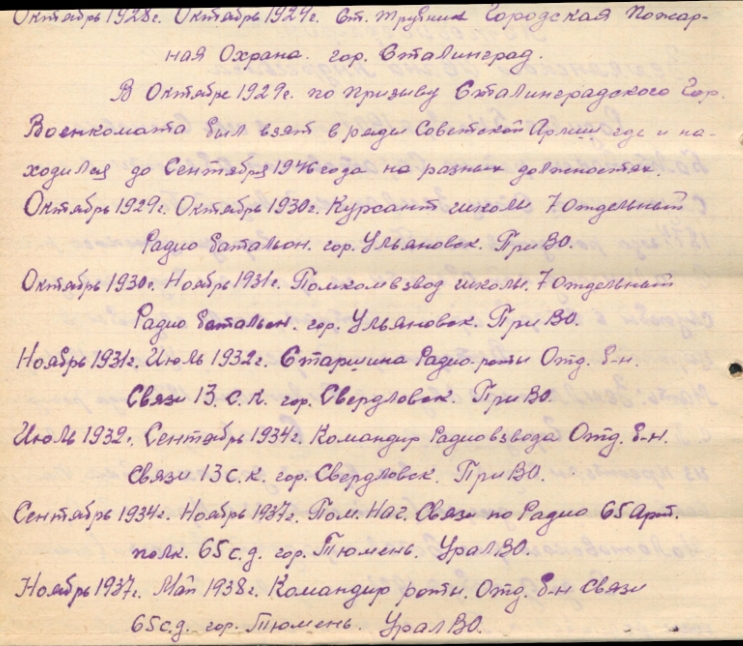 Октябрь 1928г. Октябрь 1929г. Ст. трубник Городская Пожар-
ная Охрана. гор. Сталинград.
В Октябре 1929г. по призыву Сталинградского Гор.
Военкомата был взят в ряды Советской Армии где и на-
ходился до Сентября 1946 года на разных должностях.
Октябрь 1929г. Октябрь 1930г. Курсант школы 7 Отдельный
Радио батальон. гор. Ульяновск. ПриВО.
Октябрь 1930г. Ноябрь 1931г. Помкомвзвод школы. 7 Отдельный
Радио батальон. гор. Ульяновск. ПриВО.
Ноябрь 1931г. Июль 1932г. Старшина Радио-роты Отд. б-н.
Связи 13. с.к. гор. Свердловск. ПриВО.
Июль 1932г. Сентябрь 1934г. Командир Радиовзвода Отд. б-н.
связи 13 с.к. гор. Свердловск. ПриВО.
Сентябрь 1934г. Ноябрь 1937г. Пом. Нач. Связи по Радио 65 Арт.
полк. 65 с.д. гор. Тюмень. УралВО.
Ноябрь 1937г. Май 1938г. Командир роты. Отд. б-н Связи
65 с.д. гор. Тюмень. УралВО.